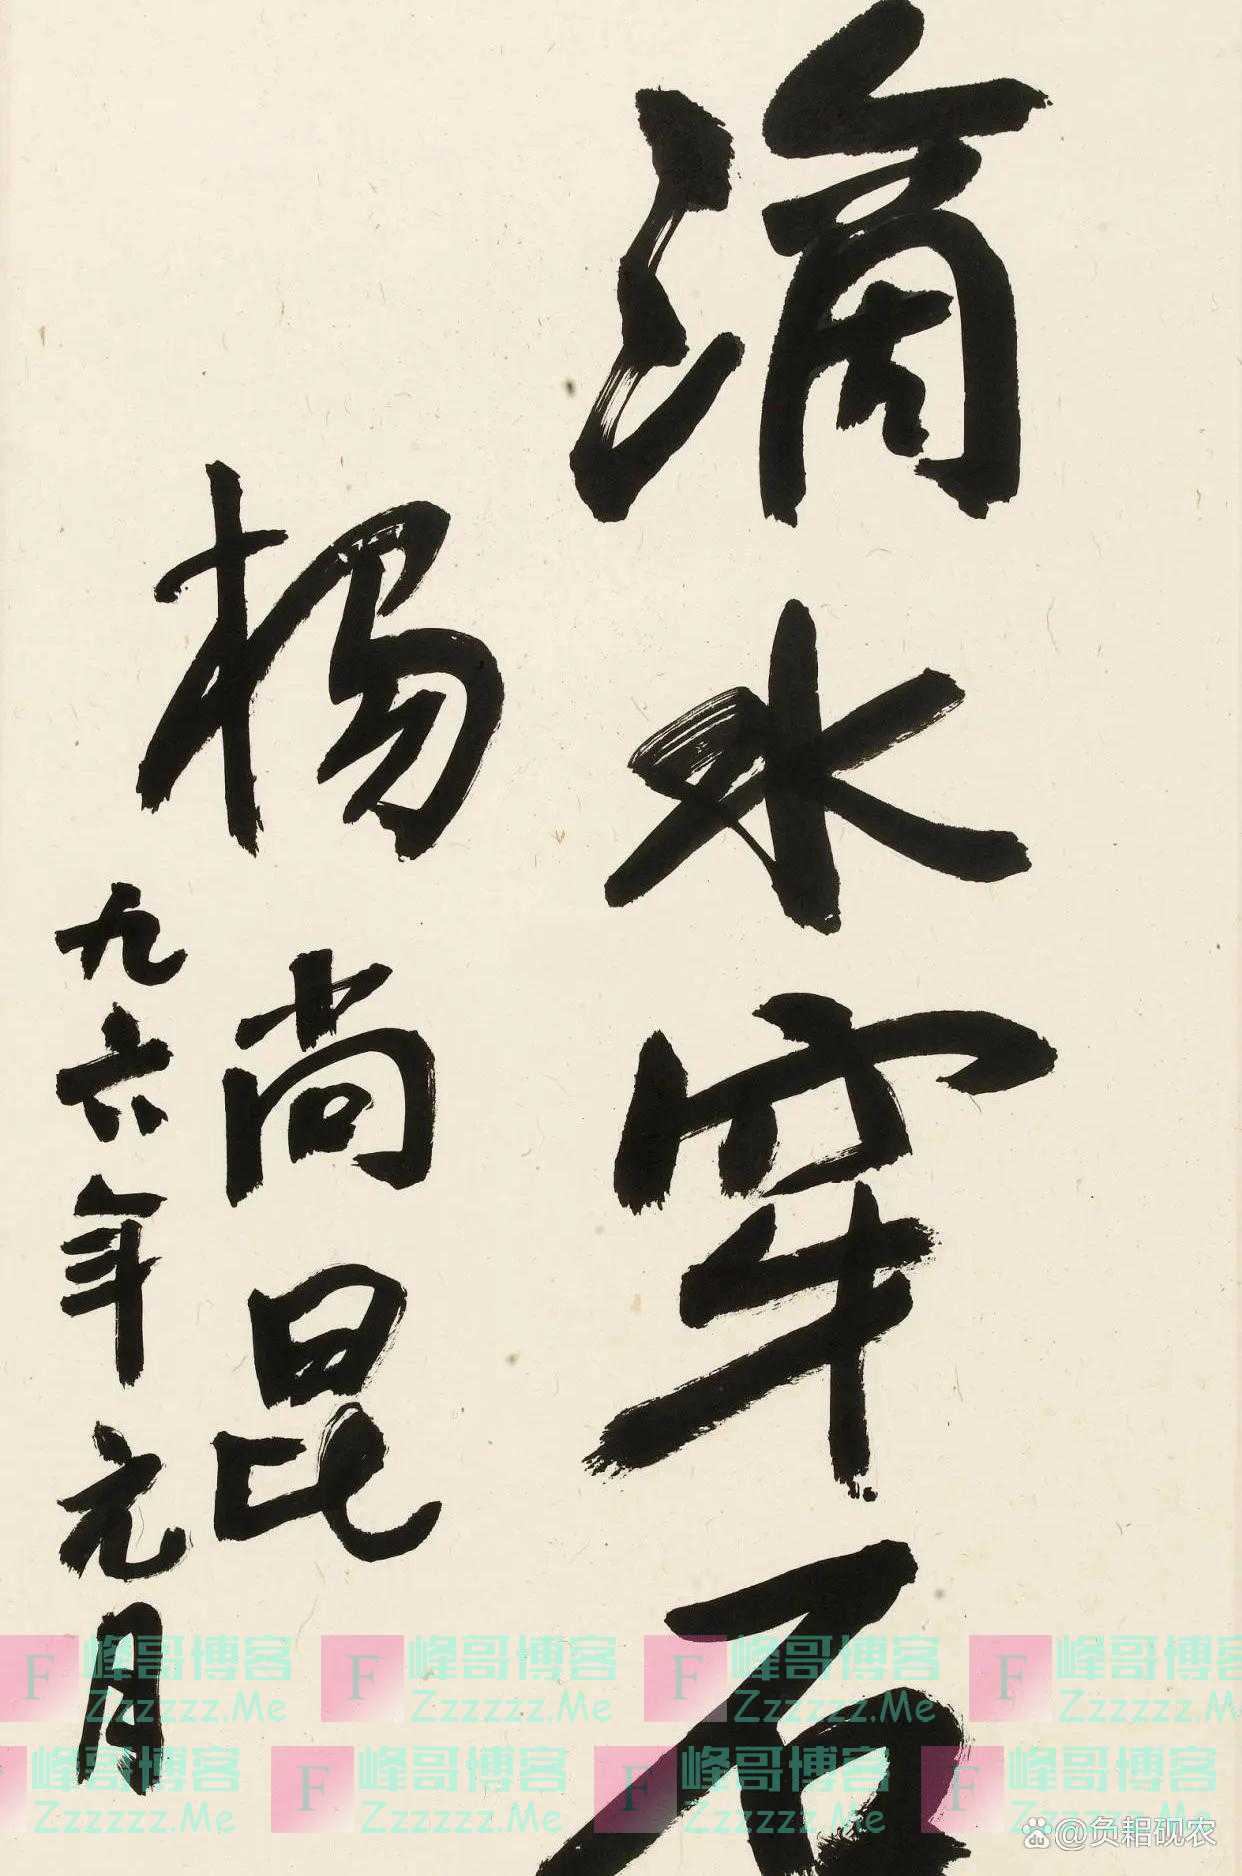 滴水穿石
杨尚昆
九六年元月
F 峰哥博客 F 峰哥博客 F 峰哥博客 F 峰哥博客
Zzzzzz.Me Zzzzzz.Me Zzzzzz.Me Zzzzzz.Me
峰哥博客 F 峰哥博客 F 峰哥博客 F 峰哥博客
Zzzzzz.Me Zzzzzz.Me Zzzzzz.Me Zzzzzz.Me
@负耜砚农